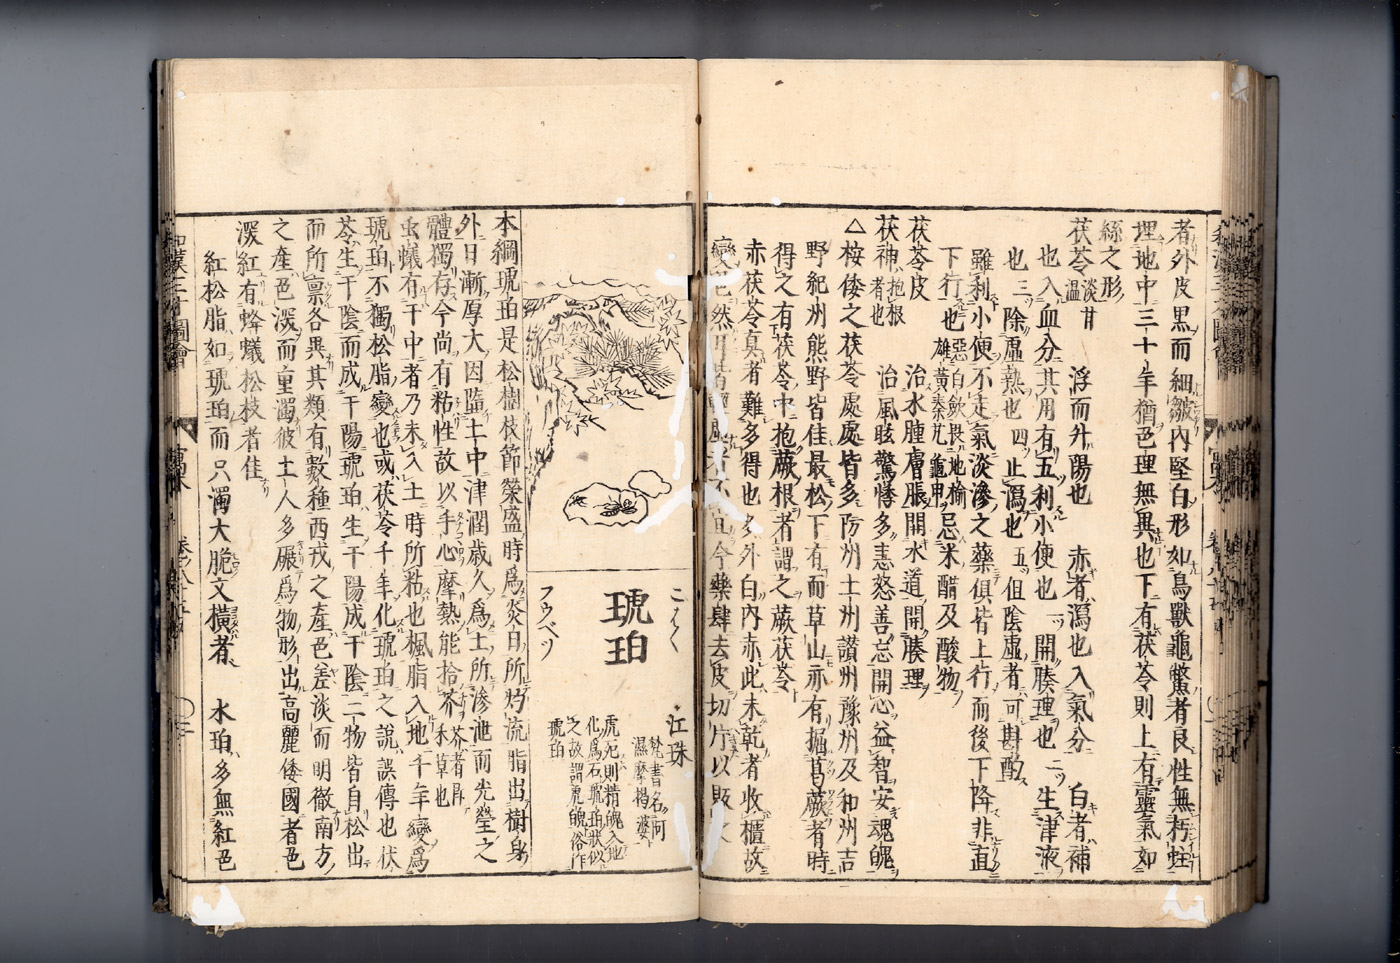 者外皮黒而細皺内堅白形如鳥獸龜鱉者良性無朽蛀
埋地中三十年猶色理無異也下有茯苓則上有靈氣如
絲之形
茯苓 淡甘温 浮而升陽也 赤者瀉也入氣分 白者補
也入血分其用有五利小便也一 開腠理也二 生津液
也三 除虛熱也四 止瀉也五 但陰虛者可斟酌
雖利小便不走氣淡滲之藥俱皆上行而後下降非直
下行也 惡白歛畏地榆雄黃秦艽龜甲 忌米醋及酸物
茯苓皮 治水腫膚脹開水道開腠理
茯神 抱根者也 治風眩驚悸多恚怒善忘開心益智安魂魄
△桉倭之茯苓處處皆多防州土州讃州豫州及和州吉
野紀州熊野皆佳最松下有而草山亦有掘葛蕨者時
得之有茯苓中抱蕨根者謂之蕨茯苓
赤茯苓真者難多得也多外白内赤此未乾者收櫃故
變色然
今藥肆去皮切片以販
こはく
琥珀
フウベツ
江珠
梵書名阿
濕摩揭婆
虎死則精魄入地
化爲石琥珀狀似
之故謂虎魄俗作
琥珀
本綱琥珀是松樹枝節榮盛時爲炎日所灼流脂出樹身
外日漸厚大因墮土中津潤歳久爲土所滲泄而光瑩之
體獨存今尚有粘性故以手心摩熱能拾芥 芥者即禾草也
蚉蟻有干中者乃未入土時所粘也楓脂入地千年變爲
琥珀不獨松脂變也或茯苓千年化琥珀之説誤傳也伏
苓生于陰而成于陽琥珀生于陽成于陰二物皆自松出
而所禀各異其類有數種西戎之産色差淡而明徹南方
之産色深而重濁彼土人多碾爲物形出高麗倭國者色
深紅有蜂蟻松枝者佳
紅松脂如琥珀而只濁大脆文橫者 水珀多無紅色
和漢三才圖會